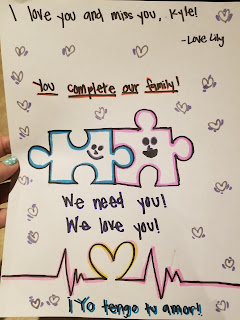 I love you and miss you, Kyle!
-Love Lily
You complete our family!
We need you!
We love you!
¡Yo tengo tu amor!